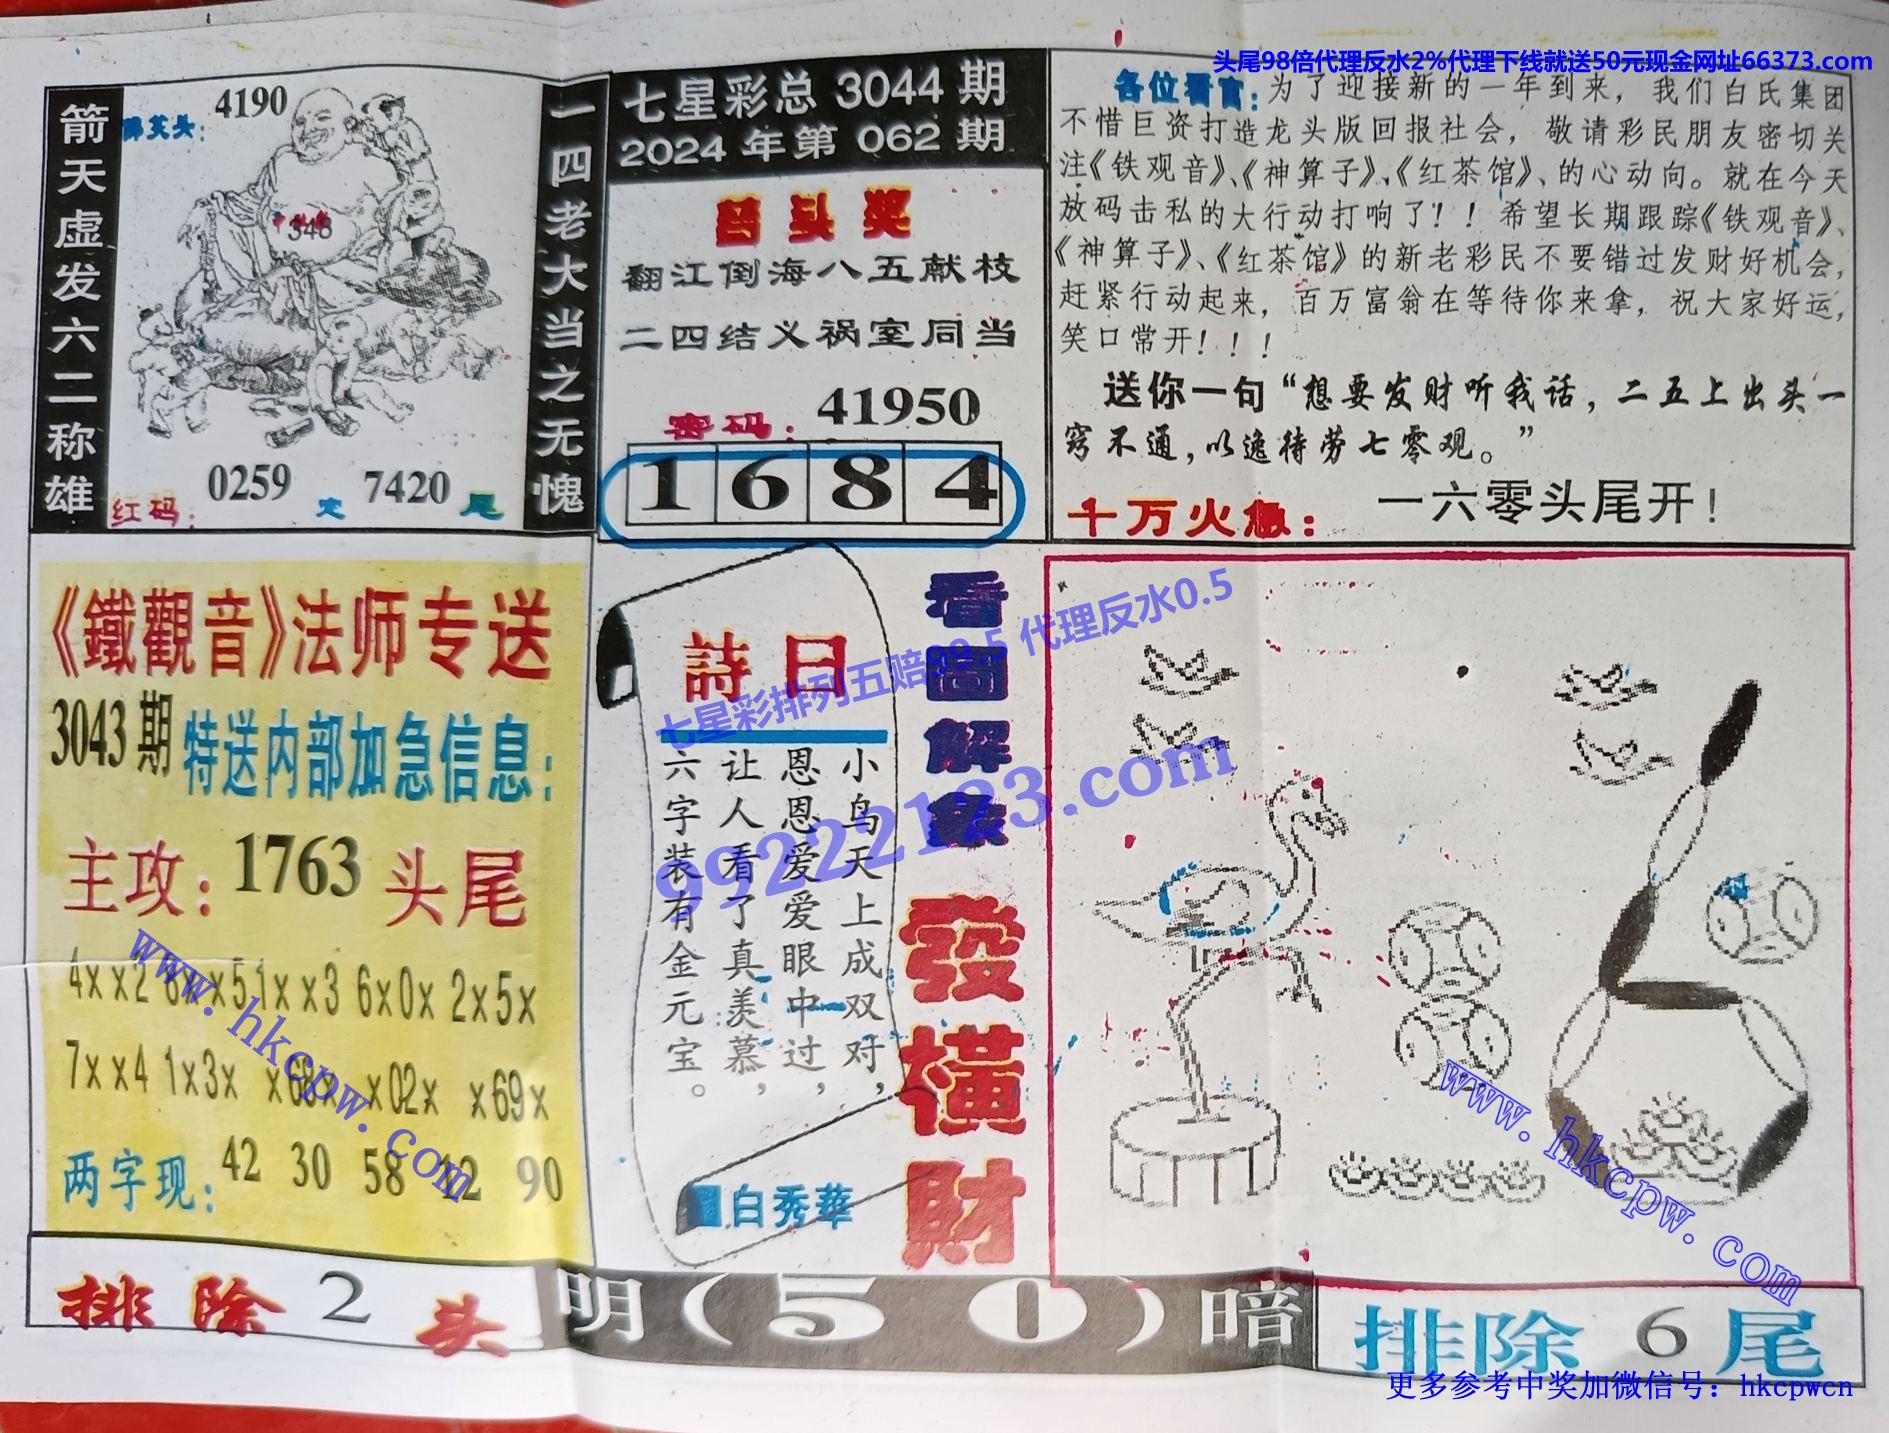 头尾98倍代理反水2%代理下线就送50元现金网址66373.com
箭天虚发六二称雄
4190
346
红码: 0259 定 7420 尾
一四老大当之无愧
七星彩总 3044 期
2024 年第 062 期
翻江倒海八五献枝
二四结义祸室同当
密码: 41950
1 6 8 4
各位看官:为了迎接新的一年到来,我们白氏集团
不惜巨资打造龙头版回报社会,敬请彩民朋友密切关
注《铁观音》、《神算子》、《红茶馆》、的心动向。就在今天
放码击私的大行动打响了!!希望长期跟踪《铁观音》、
《神算子》、《红茶馆》的新老彩民不要错过发财好机会,
赶紧行动起来,百万富翁在等待你来拿,祝大家好运,
笑口常开!!!
送你一句“想要发财听我话,二五上出头一
窍不通,以逸待劳七零观。”
十万火急: 一六零头尾开!
《鐵觀音》法师专送
3043期 特送内部加急信息:
主攻: 1763 头尾
4xx2 8xx5 1xx3 6x0x 2x5x
7xx4 1x3x x68x x02x x69x
两字现: 42 30 58 12 90
詩曰
小鸟天上成双对,
恩恩爱爱眼中过,
让人看了真美慕,
六字装有金元宝。
白秀華
看圖解象
發橫財
七星彩排列五赔99.5 代理反水0.5
99222123.com
www.hkcpw.com
www.hkcpw.com
排除 2 头
明(50)暗
排除 6 尾
更多参考中奖加微信号: hkcpwcn